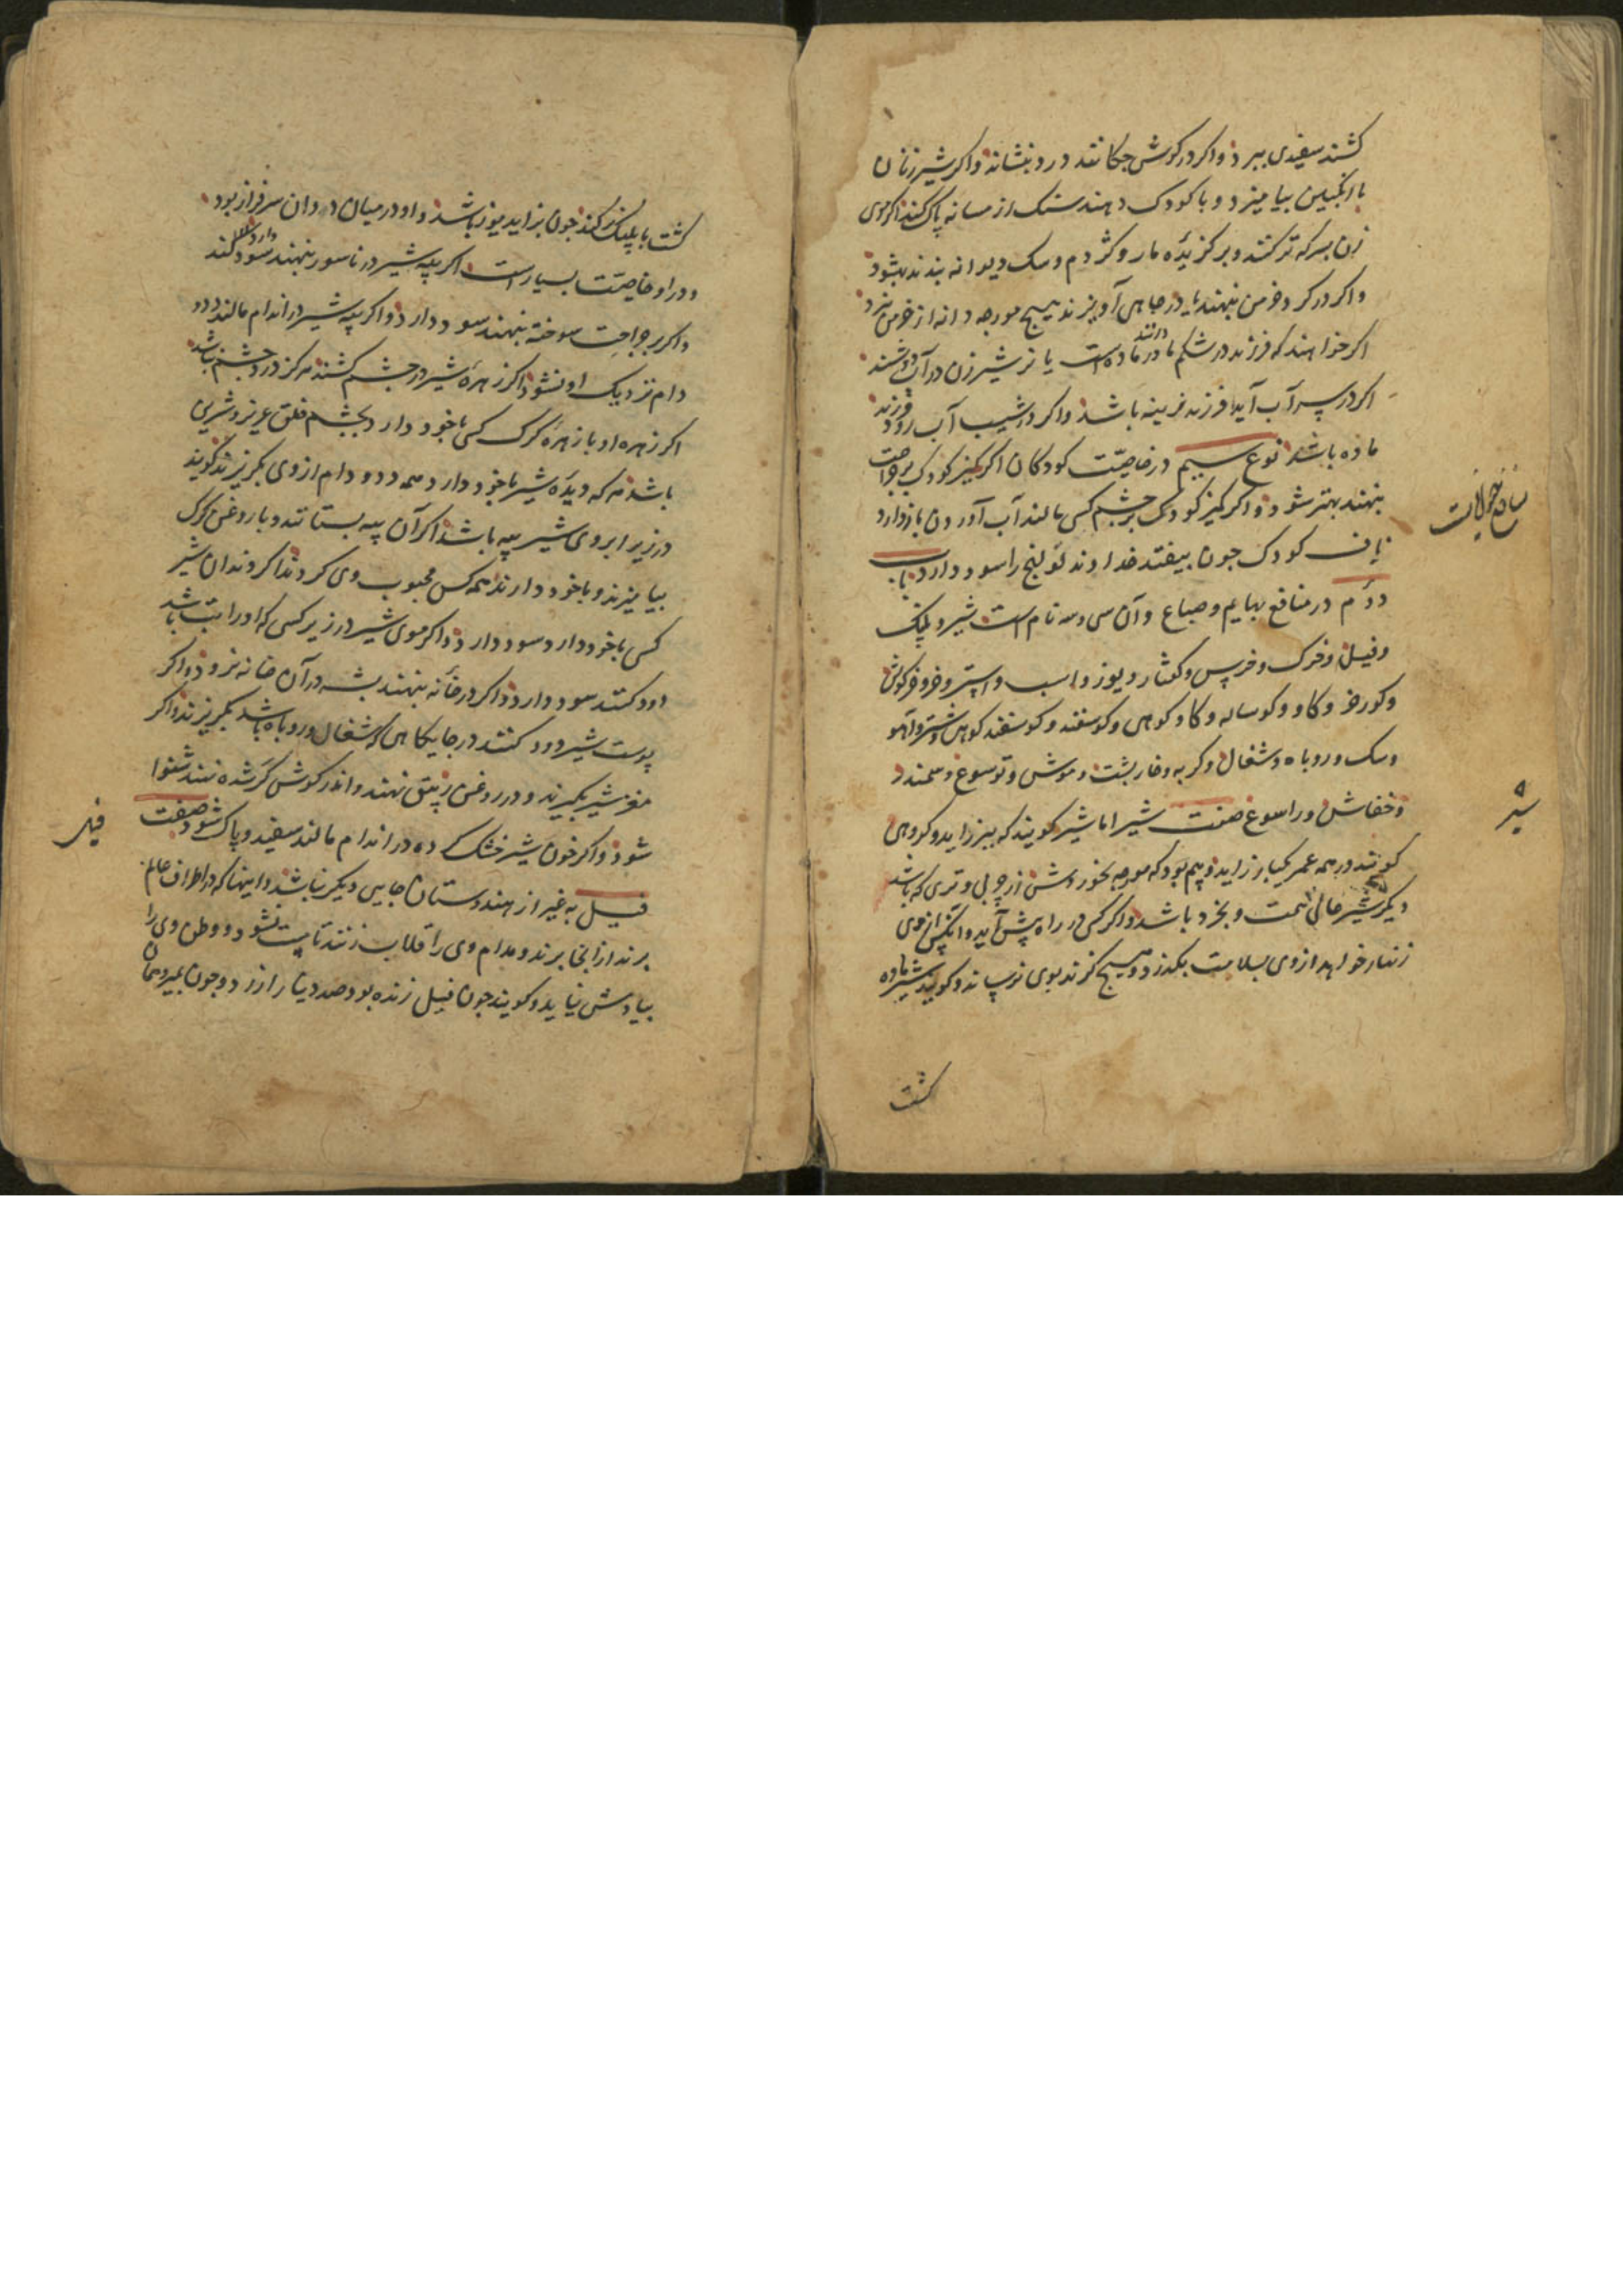 کشند سفیدی ببرد واکر در کوش چکانند درد بنشاند واکر شیر زنان
با انکبین بیامیزد و با کودک دهند سنک از مسانه پاک کند اکر موی
زن بسرکه تر کنند و بر کزیده مار و کژدم و سک دیوانه بندند بهشود
واکر در کرد خرمن بنهند یا در جاهی آویزند هیچ مورچه دانه از خرمن نبرد
اکر خواهند که فرزند در شکم مادر دانند ماده است یا نر شیر زن در آب دوشند
اکر در سر آب آید فرزند نرینه باشد واکر در شیب آب رود فرزند
ماده باشد نوع سیم در خاصیت کودکان اکر کمیز کودک بر جراحت
بنهند بهتر شود واکر کمیز کودک بر چشم کسی مالند آب آوردن بازدارد
ناف کودک جون بیفتد خداوند قولنج را سود دارد باب
دوم در منافع بهایم و صباع وآن سی وسه نام است شیر و پلنک
وفیل وخرک وخرس وکفتار ویوز واسب واستر وخر وخرکوش
وکورخر وکاو وکوساله وکاو کوهی وکوسفند وکوسفند کوهی وشتر وآهو
وسک وروباه وشغال وکربه وخارپشت وموش وتوسوغ وسمندر
وخفاش وراسوغ صفت شیر اما شیر کویند که ببر زاید وکروهی
کویند در همه عمر یکبار زاید وبیم بود که مورچه بخوردش از چربی وتری که باشد
دیکر شیر عالی همت وبخرد باشد واکر کسی در راه پیش آید وآنکس از وی
زنهار خواهد از وی بسلامت بکذرد وهیچ کزند بوی نرساند وکویند شیر ماده
کشت
منافع حیوانات
شیر
کشت با پلنک کند جون بزاید یوز باشد واو در میان ددان سرفراز بود
ودر او خاصیت بسیار است اکر پیه شیر در ناسور بنهند سود کند
واکر بر جراحت سوخته بنهند سود دارد واکر پیه شیر در اندام مالند دد و
دام نزدیک او نشود واکر زهره شیر در چشم کشند هرکز درد چشم نباشد
اکر زهره او با زهره کرک کسی با خود دارد بچشم خلق عزیز وشیرین
باشد هر که دیده شیر با خود دارد همه دد ودام از وی بکریزند کویند
در زیر ابروی شیر پیه باشد اکر آن پیه بستانند وبا روغن کرک
بیامیزند وبا خود دارند همه کس محبوب وی کردند اکر دندان شیر
کسی با خود دارد سود دارد واکر موی شیر در زیر کسی که او را تب باشد
دود کنند سود دارد واکر در خانه بنهند پشه در آن خانه نرود واکر
پوست شیر دود کنند در جایکاهی که شغال وروباه باشد بکریزند واکر
مغز شیر بکیرند ودر روغن زیتق نهند واندر کوش کر شده نهند شنوا
شود واکر خون شیر خشک کرده در اندام مالند سفید وپاک شود صفت
فیل به غیر از هندوستان جایی دیکر نباشد واینها که در اطراف عالم
برند از انجا برند ومدام وی را قلاب زنند تا مست نشود ووطن وی را
بیادش نیاید وکویند جون فیل زنده بود صد دینار ارزد وجون بمیرد همان
فیل